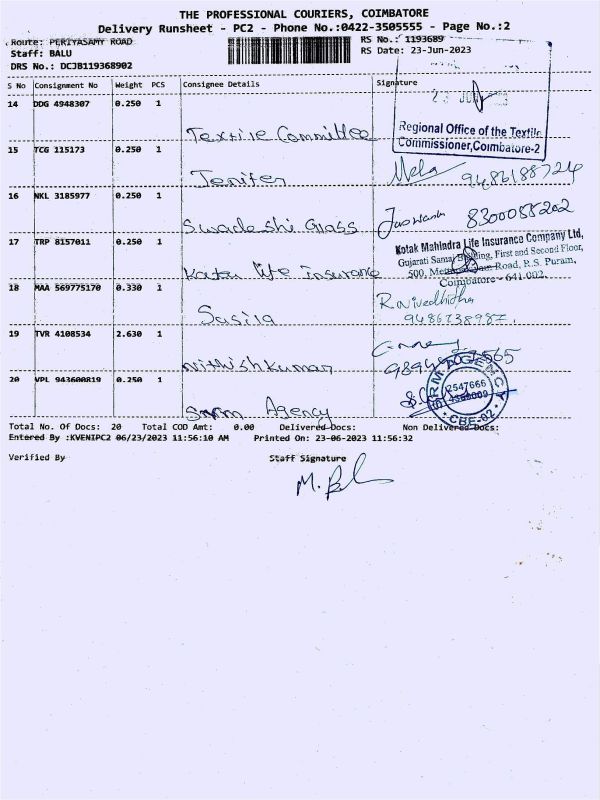 THE PROFESSIONAL COURIERS, COIMBATORE
Delivery Runsheet - PC2 - Phone No.:0422-3505555 - Page No.:2
Route: PERIYASAMY ROAD
RS No.: 1193689
Staff: BALU
RS Date: 23-Jun-2023
DRS No.: DCJB119368902
S No Consignment No Weight PCS Consignee Details Signature
14 DDG 4948307 0.250 1
Textile Committee
Regional Office of the Textile
Commissioner, Coimbatore-2
15 TCG 115173 0.250 1
Jenifer
9486188724
16 NKL 3185977 0.250 1
Swadeshi Glass
8300055202
17 TRP 8157011 0.250 1
Kotak life insurance
Kotak Mahindra Life Insurance Company Ltd,
Gujarati Samaj Building, First and Second Floor,
500, Road, R.S. Puram,
Coimbatore - 641 002.
18 MAA 569775170 0.330 1
Sasila
R. Nivedhitha
19 TVR 4108534 2.630 1
Nithishkumar
20 VPL 943600819 0.250 1
Srm Agency
2547666
CBE-02
Total No. Of Docs: 20 Total COD Amt: 0.00 Delivered Docs: Non Delivered Docs:
Entered By :KVENIPC2 06/23/2023 11:56:10 AM Printed On: 23-06-2023 11:56:32
Verified By Staff Signature